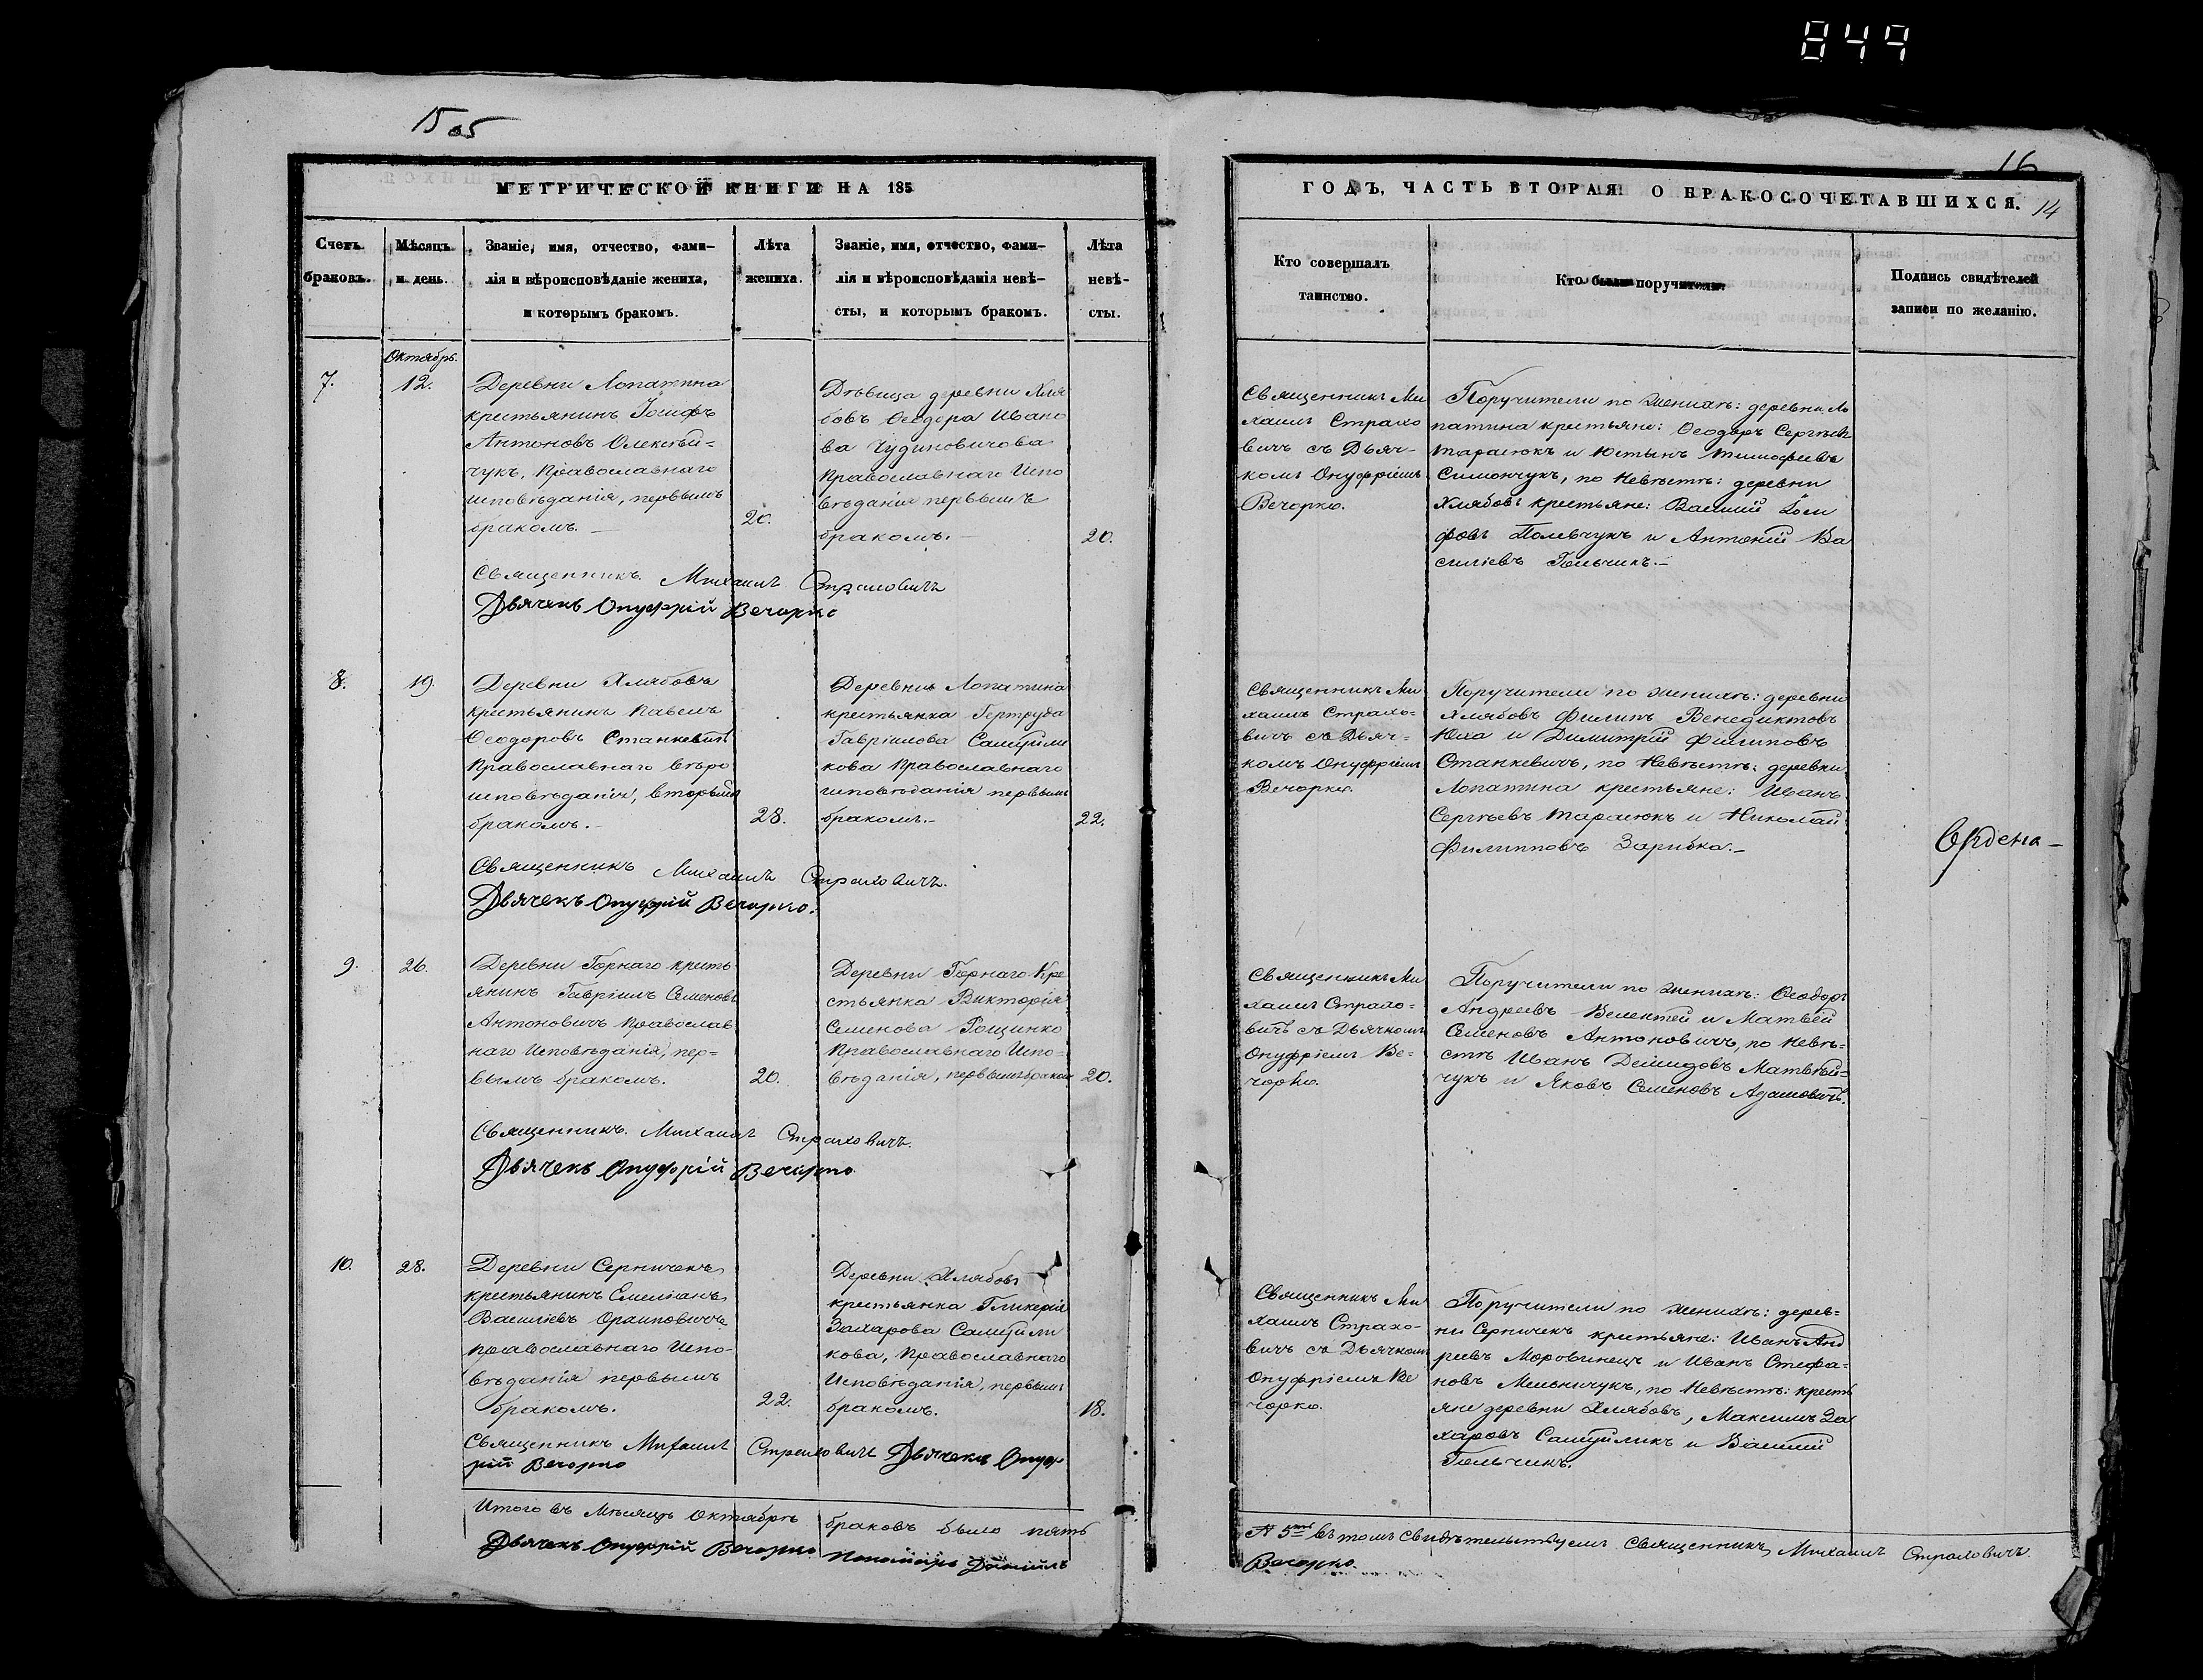 849
15
16
МЕТРИЧЕСКОЙ КНИГИ НА 185
ГОДЪ, ЧАСТЬ ВТОРАЯ О БРАКОСОЧЕТАВШИХСЯ.
14
Счетъ
браковъ.
Мѣсяцъ
и день.
Званіе, имя, отчество, фами-
лія и вѣроисповѣданіе жениха,
и которымъ бракомъ.
Лѣта
жениха.
Званіе, имя, отчество, фами-
лія и вѣроисповѣданія невѣ-
сты, и которымъ бракомъ.
Лѣта
невѣ-
сты.
Кто совершалъ
таинство.
Кто были поручители.
Подпись свидѣтелей
записи по желанію.
Октябрь.
7.
12.
Деревни Лопатина
крестьянинъ Іосифъ
Антоновъ Олексѣй-
чукъ, Православнаго
исповѣданія, первымъ
бракомъ.
20.
Дѣвица деревни Хля
бовъ Ѳеодора Ивано
ва Чудиновичова
Православнаго Испо
вѣданія первымъ
бракомъ.
20.
Священникъ Ми
хаилъ Страхо
вичъ съ Дьяч-
комъ Онуфріемъ
Вечорко.
Поручители по женихѣ: деревни Ло
патина крестьяне: Ѳеодоръ Сергѣевъ
Тарасюкъ и Юстынъ Тимофеевъ
Симончукъ, по Невѣстѣ: деревни
Хлябовъ крестьяне: Василий Іоси
фовъ Полевчукъ и Антоній Ва
силіевъ Гольчикъ.
Священникъ Михаилъ Страховичъ
Дьячекъ Онуфрій Вечорко
8.
19.
Деревни Хлябовъ
крестьянинъ Павелъ
Ѳеодоровъ Станкевичъ
Православнаго вѣро
исповѣданія, вторымъ
бракомъ.
28.
Деревни Лопатина
крестьянка Гертруда
Гавріилова Самуйли
кова Православнаго
исповѣданія первымъ
бракомъ.
22.
Священникъ Ми
хаилъ Страхо-
вичъ съ Дьяч-
комъ Онуфріемъ
Вечорко.
Поручители по женихѣ: деревни
Хлябовъ Филипъ Венедиктовъ
Юха и Димитрій Филиповъ
Станкевичъ, по Невѣстѣ: деревни
Лопатина крестьяне: Иванъ
Сергѣевъ Тарасюкъ и Николай
Филипповъ Зарибка.
Священникъ Михаилъ Страховичъ.
Дьячекъ Онуфрій Вечорко.
9.
26.
Деревни Горнаго кресть
янинъ Гавріилъ Семеновъ
Антоновичъ Православ
наго Исповѣданія, пер-
вымъ бракомъ.
20.
Деревни Горнаго Кре
стьянка Викторія
Семенова Рощинко
Православнаго Испо-
вѣданія, первымъ бракомъ
20.
Священникъ Ми
хаилъ Страхо-
вичъ съ Дьячкомъ
Онуфріемъ Ве-
чорко.
Поручители по женихѣ: Ѳеодоръ
Андреевъ Велентей и Матвѣй
Семеновъ Антоновичъ, по Невѣ-
стѣ Иванъ Демидовъ Матвѣй-
чукъ и Яковъ Семеновъ Адамовичъ.
Священникъ Михаилъ Страховичъ.
Дьячекъ Онуфрій Вечорко
10.
28.
Деревни Серничекъ
крестьянинъ Емеліанъ
Василіевъ Ораиповичъ
Православнаго Испо-
вѣданія первымъ
бракомъ.
22.
Деревни Хлябовъ
крестьянка Гликерія
Захарова Самуйли
кова, Православнаго
Исповѣданія, первымъ
бракомъ.
18.
Священникъ Ми
хаилъ Страхо-
вичъ съ Дьячкомъ
Онуфріемъ Ве
чорко.
Поручители по женихѣ: дерев-
ни Серничекъ крестьяне: Иванъ Анд
реевъ Моровинецъ и Иванъ Стефа-
новъ Мельничукъ, по Невѣстѣ: кресть
яне деревни Хлябовъ, Максимъ За
харовъ Самуйликъ и Василій
Гольчикъ.
Священникъ Михаилъ Страховичъ Дьячекъ Онуф
рій Вечорко
Итого въ Мѣсяцѣ Октябрѣ браковъ было пять
№ 5 въ томъ свидѣтельствуемъ Священникъ Михаилъ Страховичъ
Дьячекъ Онуфрій Вечорко Пономарь Даніилъ
Вечорко.